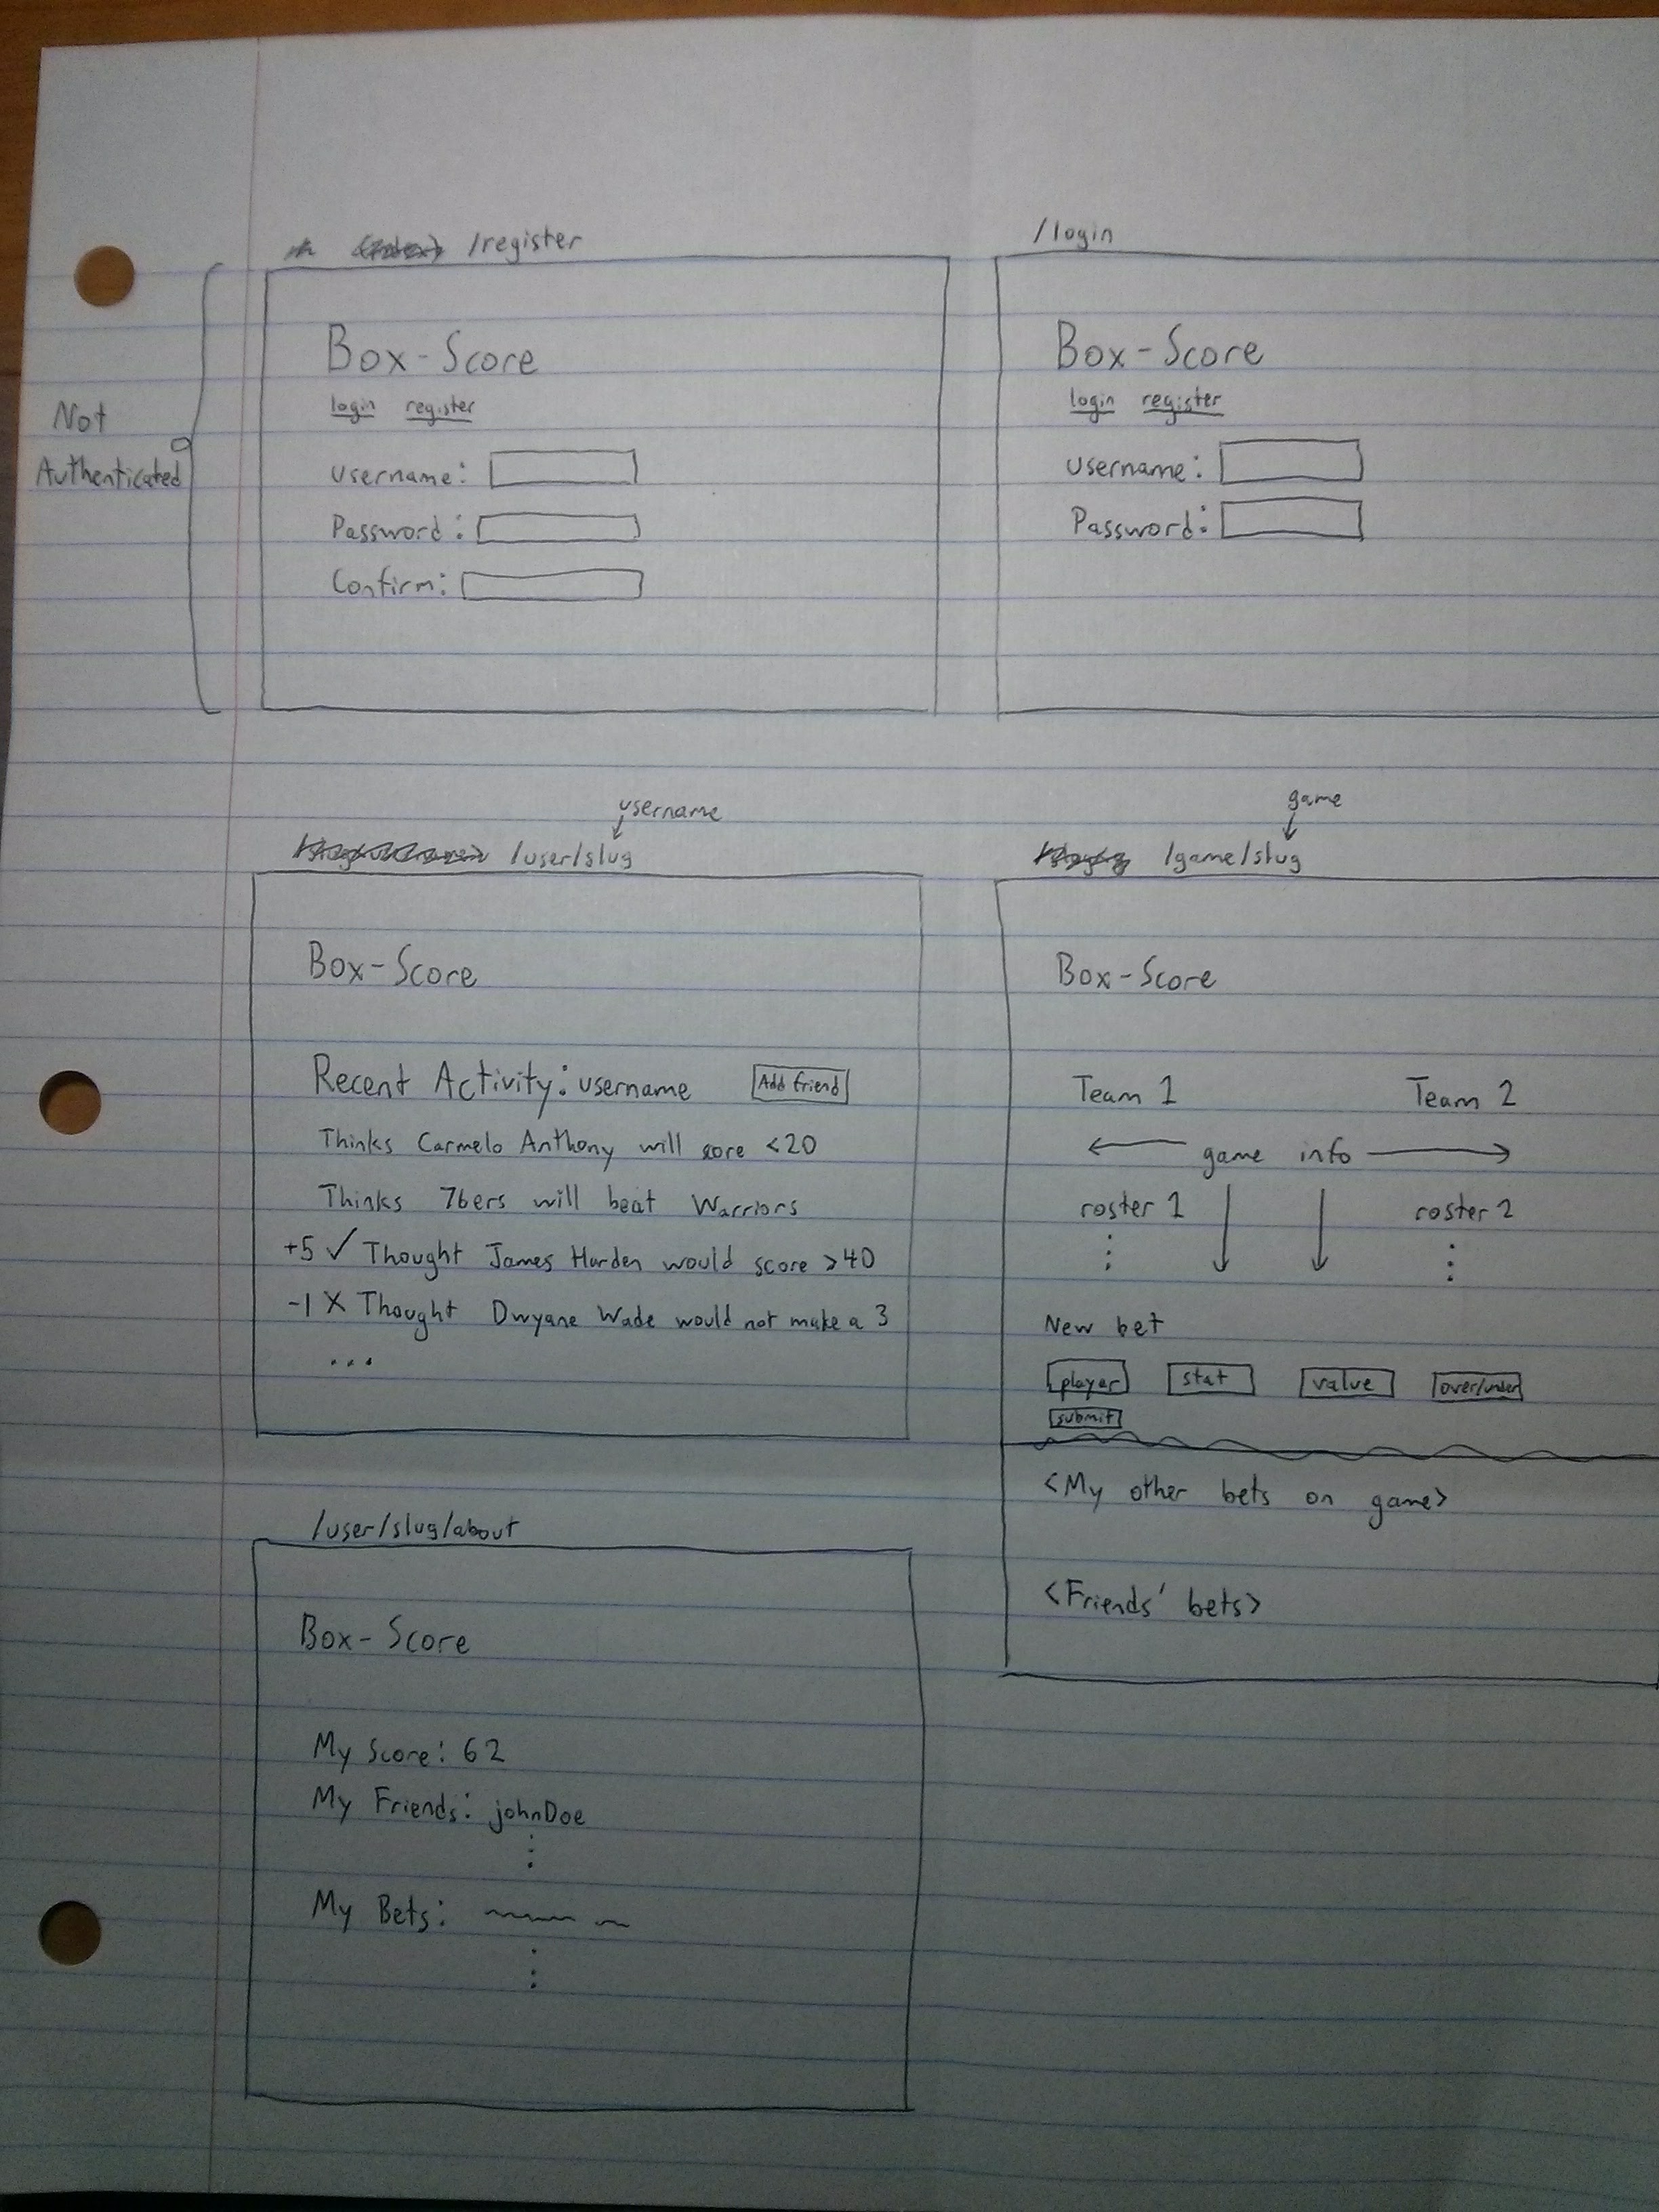 /register
Box-Score
login register
Username:
Password:
Confirm:
Not
Authenticated
/login
Box-Score
login register
Username:
Password:
username
/user/slug
Box-Score
Recent Activity: username Add friend
Thinks Carmelo Anthony will score <20
Thinks 76ers will beat Warriors
+5 ✓ Thought James Harden would score >40
-1 X Thought Dwyane Wade would not make a 3
...
game
/game/slug
Box-Score
Team 1 Team 2
game info
roster 1 roster 2
New bet
player stat value over/under
submit
<My other bets on game>
<Friends' bets>
/user/slug/about
Box-Score
My Score: 62
My Friends: johnDoe
My Bets: